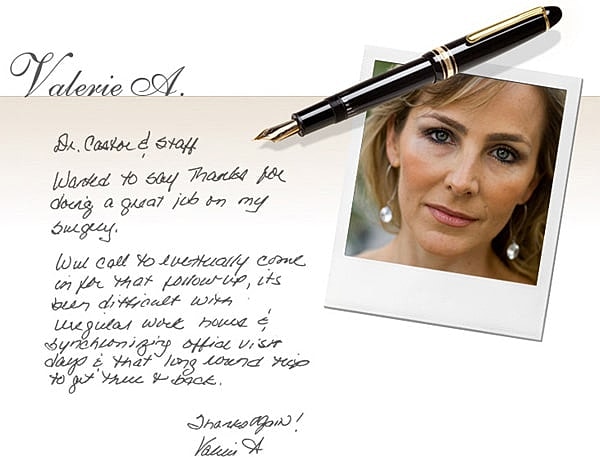 Valerie A.
Dr. Castor & Staff
Wanted to say Thanks for
doing a great job on my
surgery.
Will call to eventually come
in for that follow up, its
been difficult with
irregular work hours &
synchronizing office visit
days & that long round trip
to get there & back.
Thanks again!
Valerie A